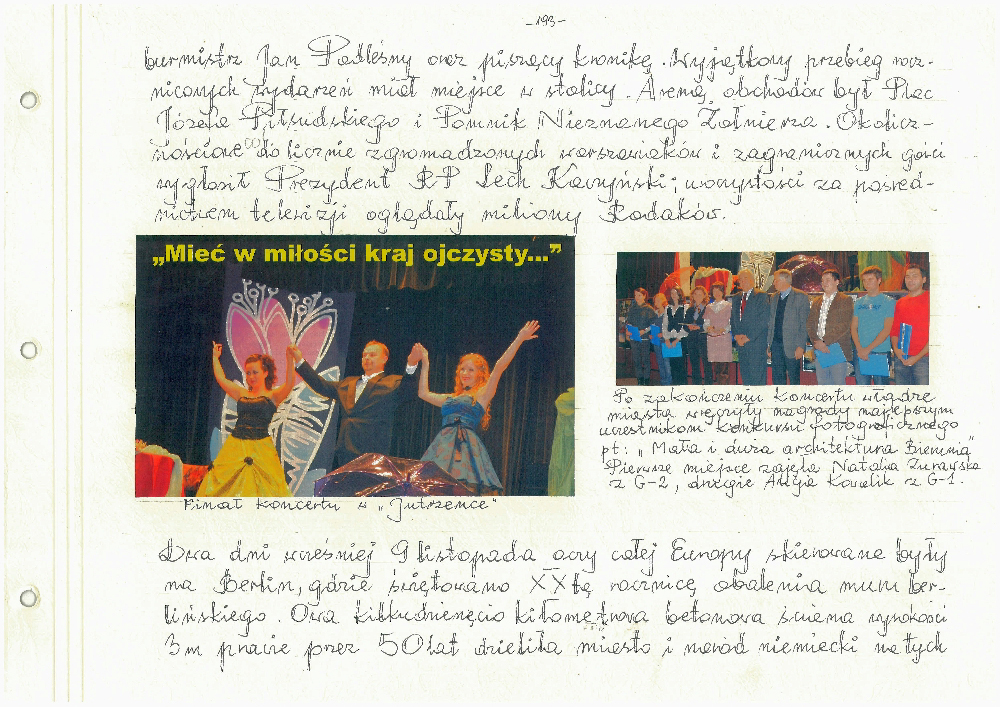 -193-
burmistrz Jan Podleśny oraz piszący kronikę. Wyjątkowy przebieg rocz-
nicowych wydarzeń miał miejsce w stolicy. Areną obchodów był Plac
Józefa Piłsudskiego i Pomnik Nieznanego Żołnierza. Okolicz-
nościowe do licznie zgromadzonych warszawiaków i zagranicznych gości
wygłosił Prezydent RP Lech Kaczyński; uroczystości za pośred-
nictwem telewizji oglądały miliony Rodaków.
„Mieć w miłości kraj ojczysty...”
Finał koncertu w „Jutrzence"
Po zakończeniu koncertu władze
miasta wręczyły nagrody najlepszym
uczestnikom konkursu fotograficznego
pt: „Mała i duża architektura Bierunia"
Pierwsze miejsce zajęła Natalia Żurawska
z G-2, drugie Alicja Kowalik z G-1.
Dwa dni wcześniej 9 listopada oczy całej Europy skierowane były
na Berlin, gdzie świętowano XX-tę rocznicę obalenia muru ber-
lińskiego. Owa kilkudziesięcio kilometrowa betonowa ściana wysokości
3m prawie przez 50 lat dzieliła miasto i naród niemiecki na tych